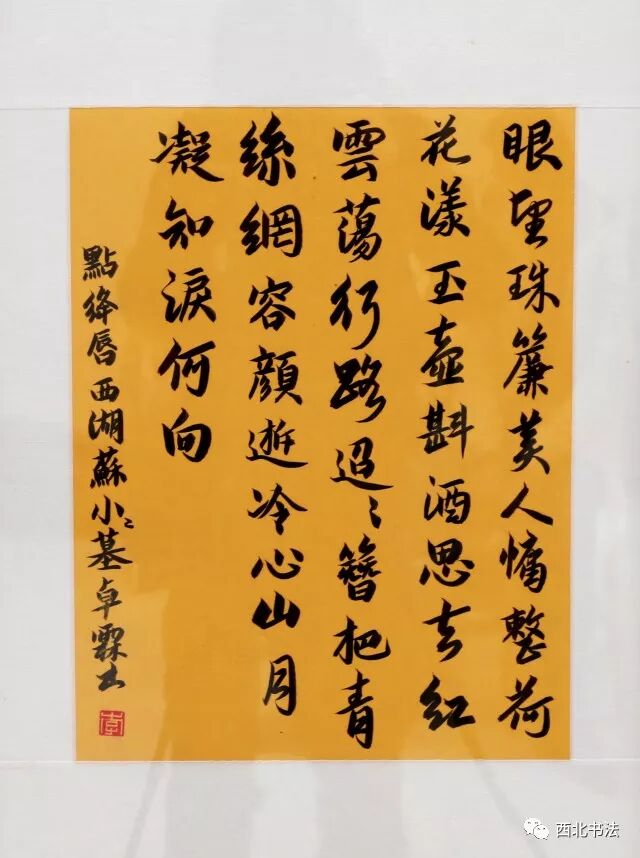 眼望珠簾美人慵整荷
花漾玉壺斟酒思去紅
雲蕩行路迢〻簪把青
絲網容顏逝冷心山月
凝知淚何向
點絳唇西湖蘇小〻墓卓霖书
李
西北书法